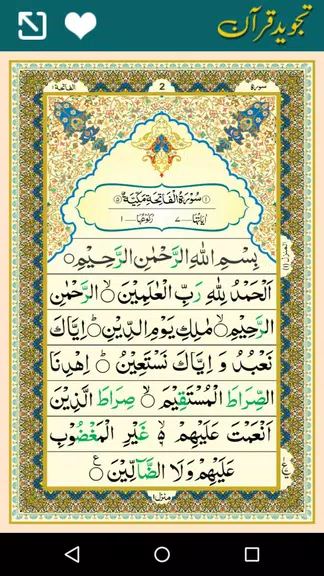 تجوید قرآن
الفاتحة ١
2
سورة
سُوْرَةُ الْفَاتِحَةِ مَكِّيَّةٌ
اٰيَاتُهَا ٧ رُكُوْعُهَا ١
بِسْمِ اللّٰهِ الرَّحْمٰنِ الرَّحِيْمِ
اَلْحَمْدُ لِلّٰهِ رَبِّ الْعٰلَمِيْنَ ۙ الرَّحْمٰنِ
الرَّحِيْمِ ۙ مٰلِكِ يَوْمِ الدِّيْنِ ؕ اِيَّاكَ
نَعْبُدُ وَ اِيَّاكَ نَسْتَعِيْنُ ؕ اِهْدِنَا
الصِّرَاطَ الْمُسْتَقِيْمَ ۙ صِرَاطَ الَّذِيْنَ
اَنْعَمْتَ عَلَيْهِمْ ۙ غَيْرِ الْمَغْضُوْبِ
عَلَيْهِمْ وَلَا الضَّآلِّيْنَ
منزل ١